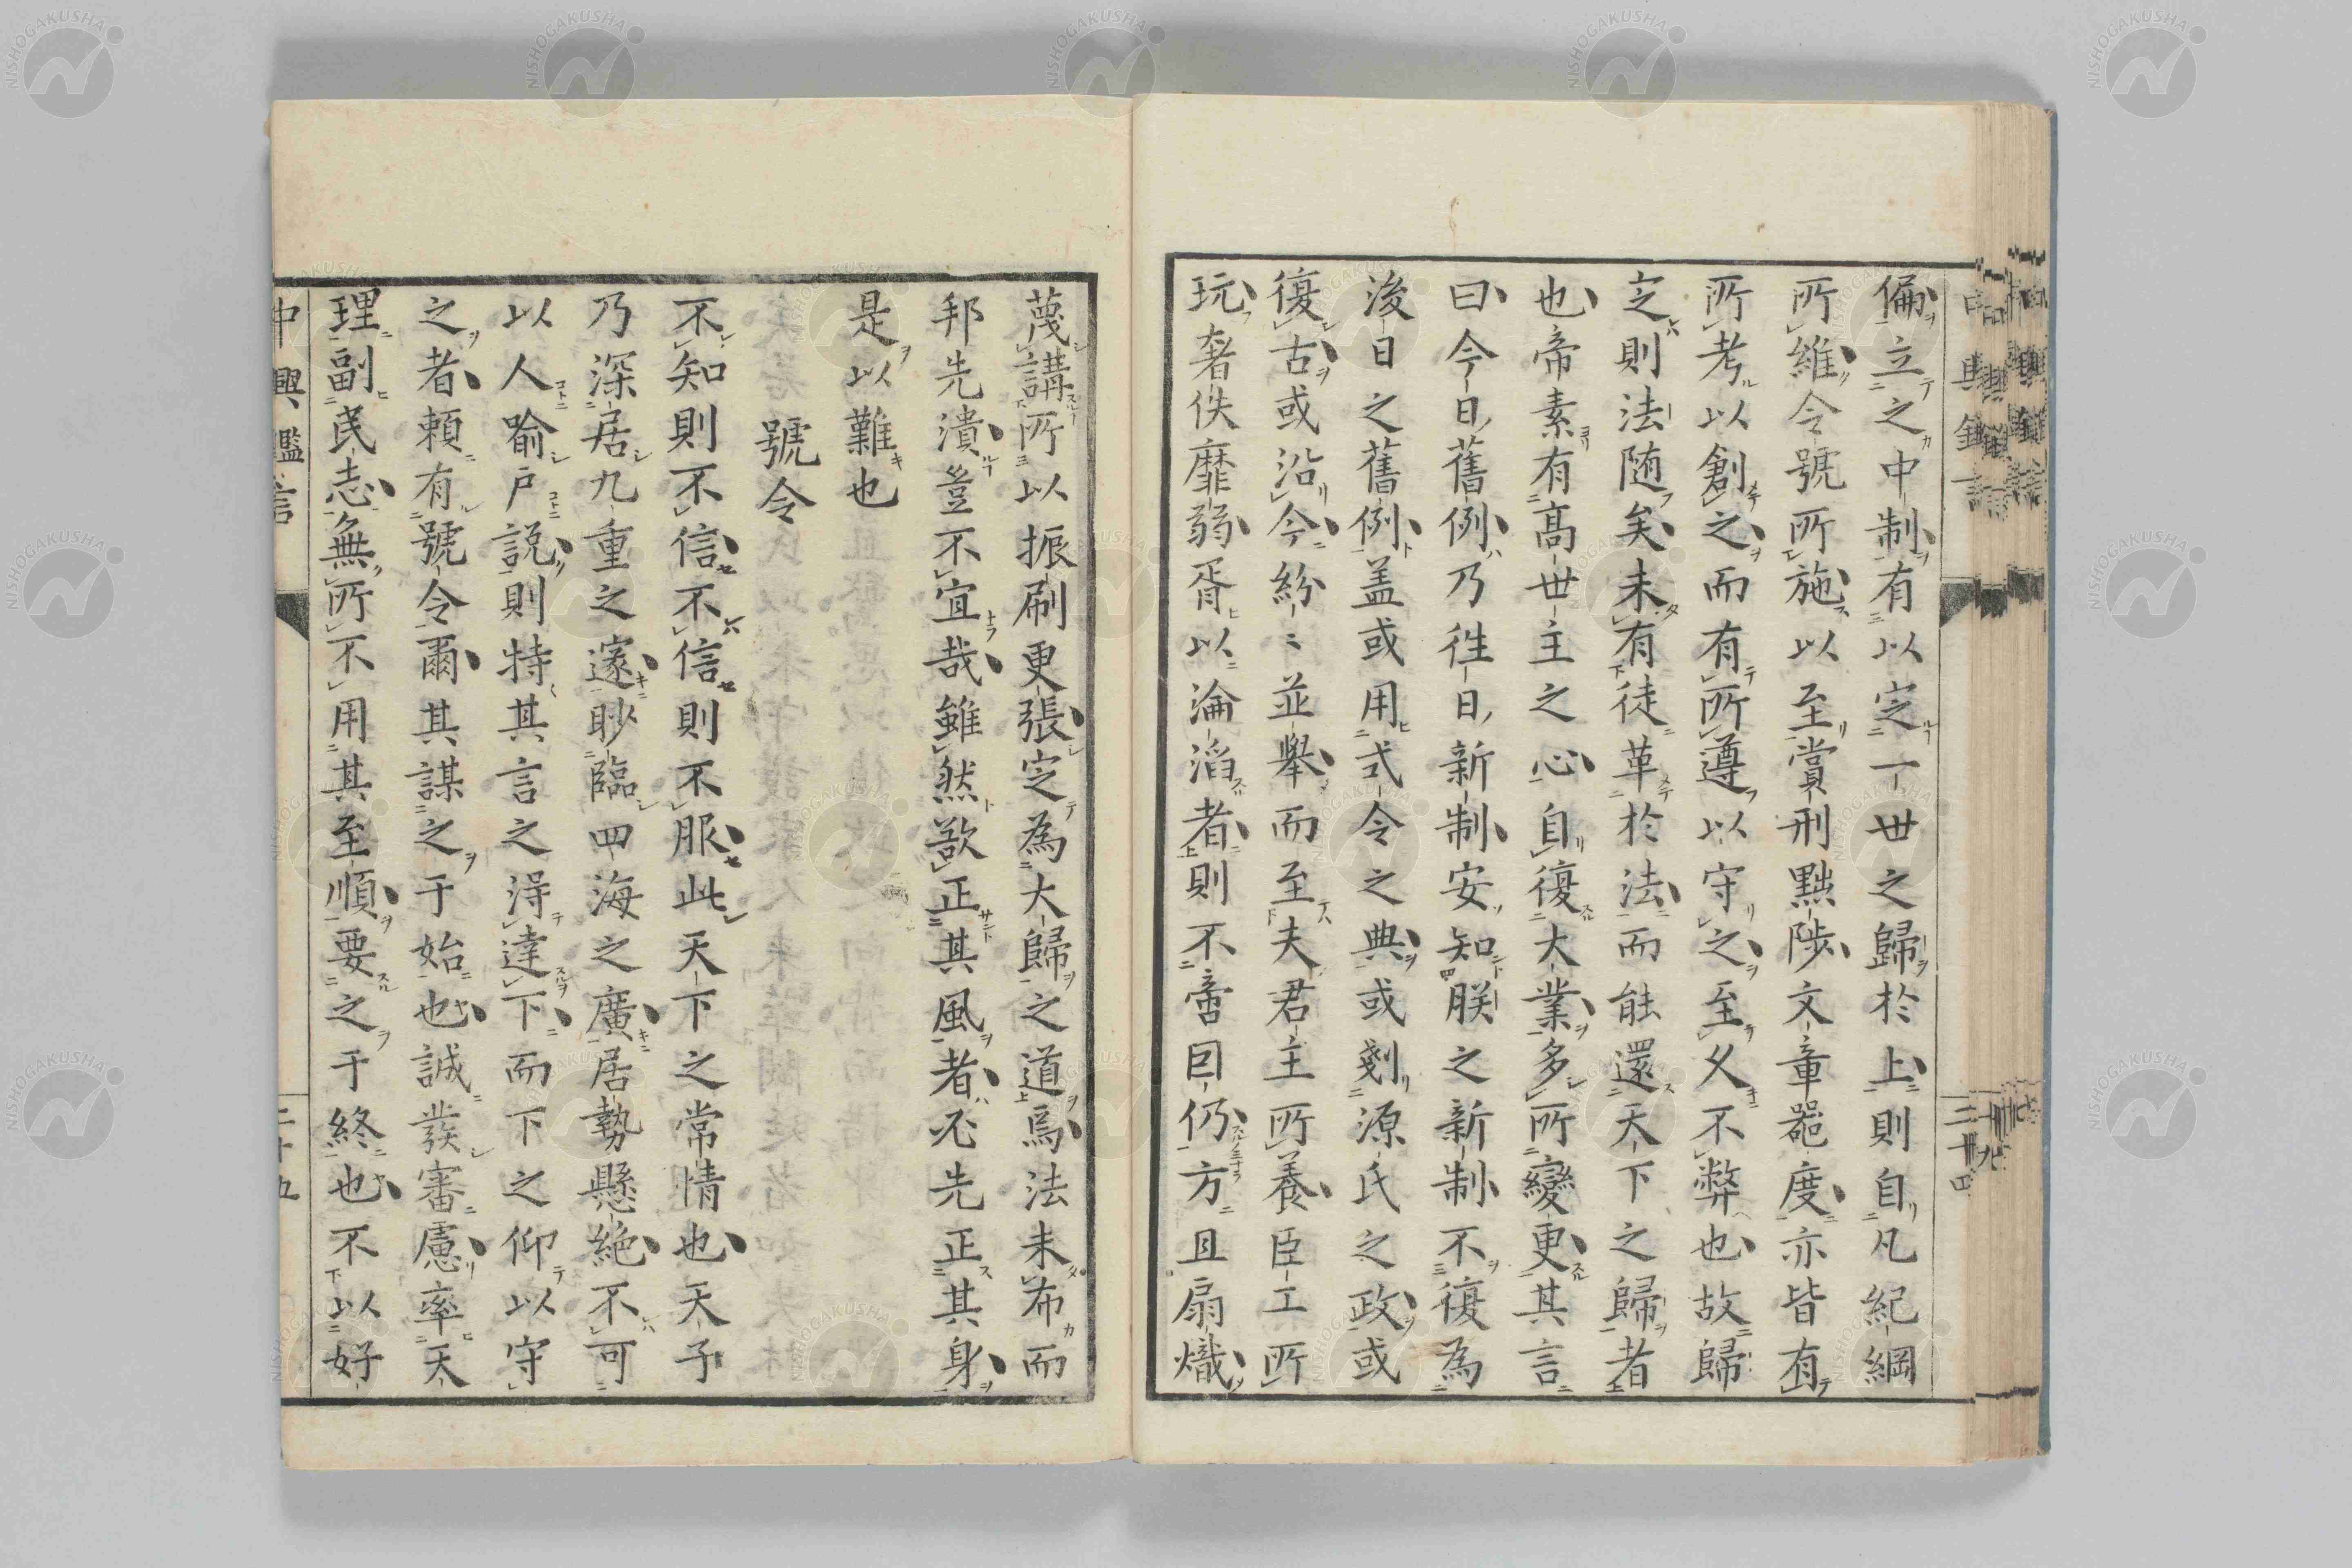 偏立之中制有以定一世之歸於上則自凡紀綱
所維令號所施以至賞刑黜陟文章器度亦皆有
所考以創之而有所遵以守之至久不弊也故歸
定則法随矣未有徒革於法而能還天下之歸者
也帝素有高世主之心自復大業多所變更其言
曰今日舊例乃徃日新制安知朕之新制不復為
後日之舊例盖或用式令之典或剗源氏之政或
復古或沿今紛〻並舉而至夫君主所養臣工所
玩奢佚靡弱胥以淪滔者則不啻因仍方且扇熾
蔑講所以振刷更張定為大歸之道焉法未布而
邦先潰豈不宜哉雖然欲正其風者必先正其身
是以難也
號令
不知則不信不信則不服此天下之常情也天子
乃深居九重之邃眇臨四海之廣居勢懸絶不可
以人喩戶説則特其言之得達下而下之仰以守
之者頼有號令爾其謀之于始也誠發審慮率天
理副民志無所不用其至順要之于終也不以好
中興鑑言
二十五